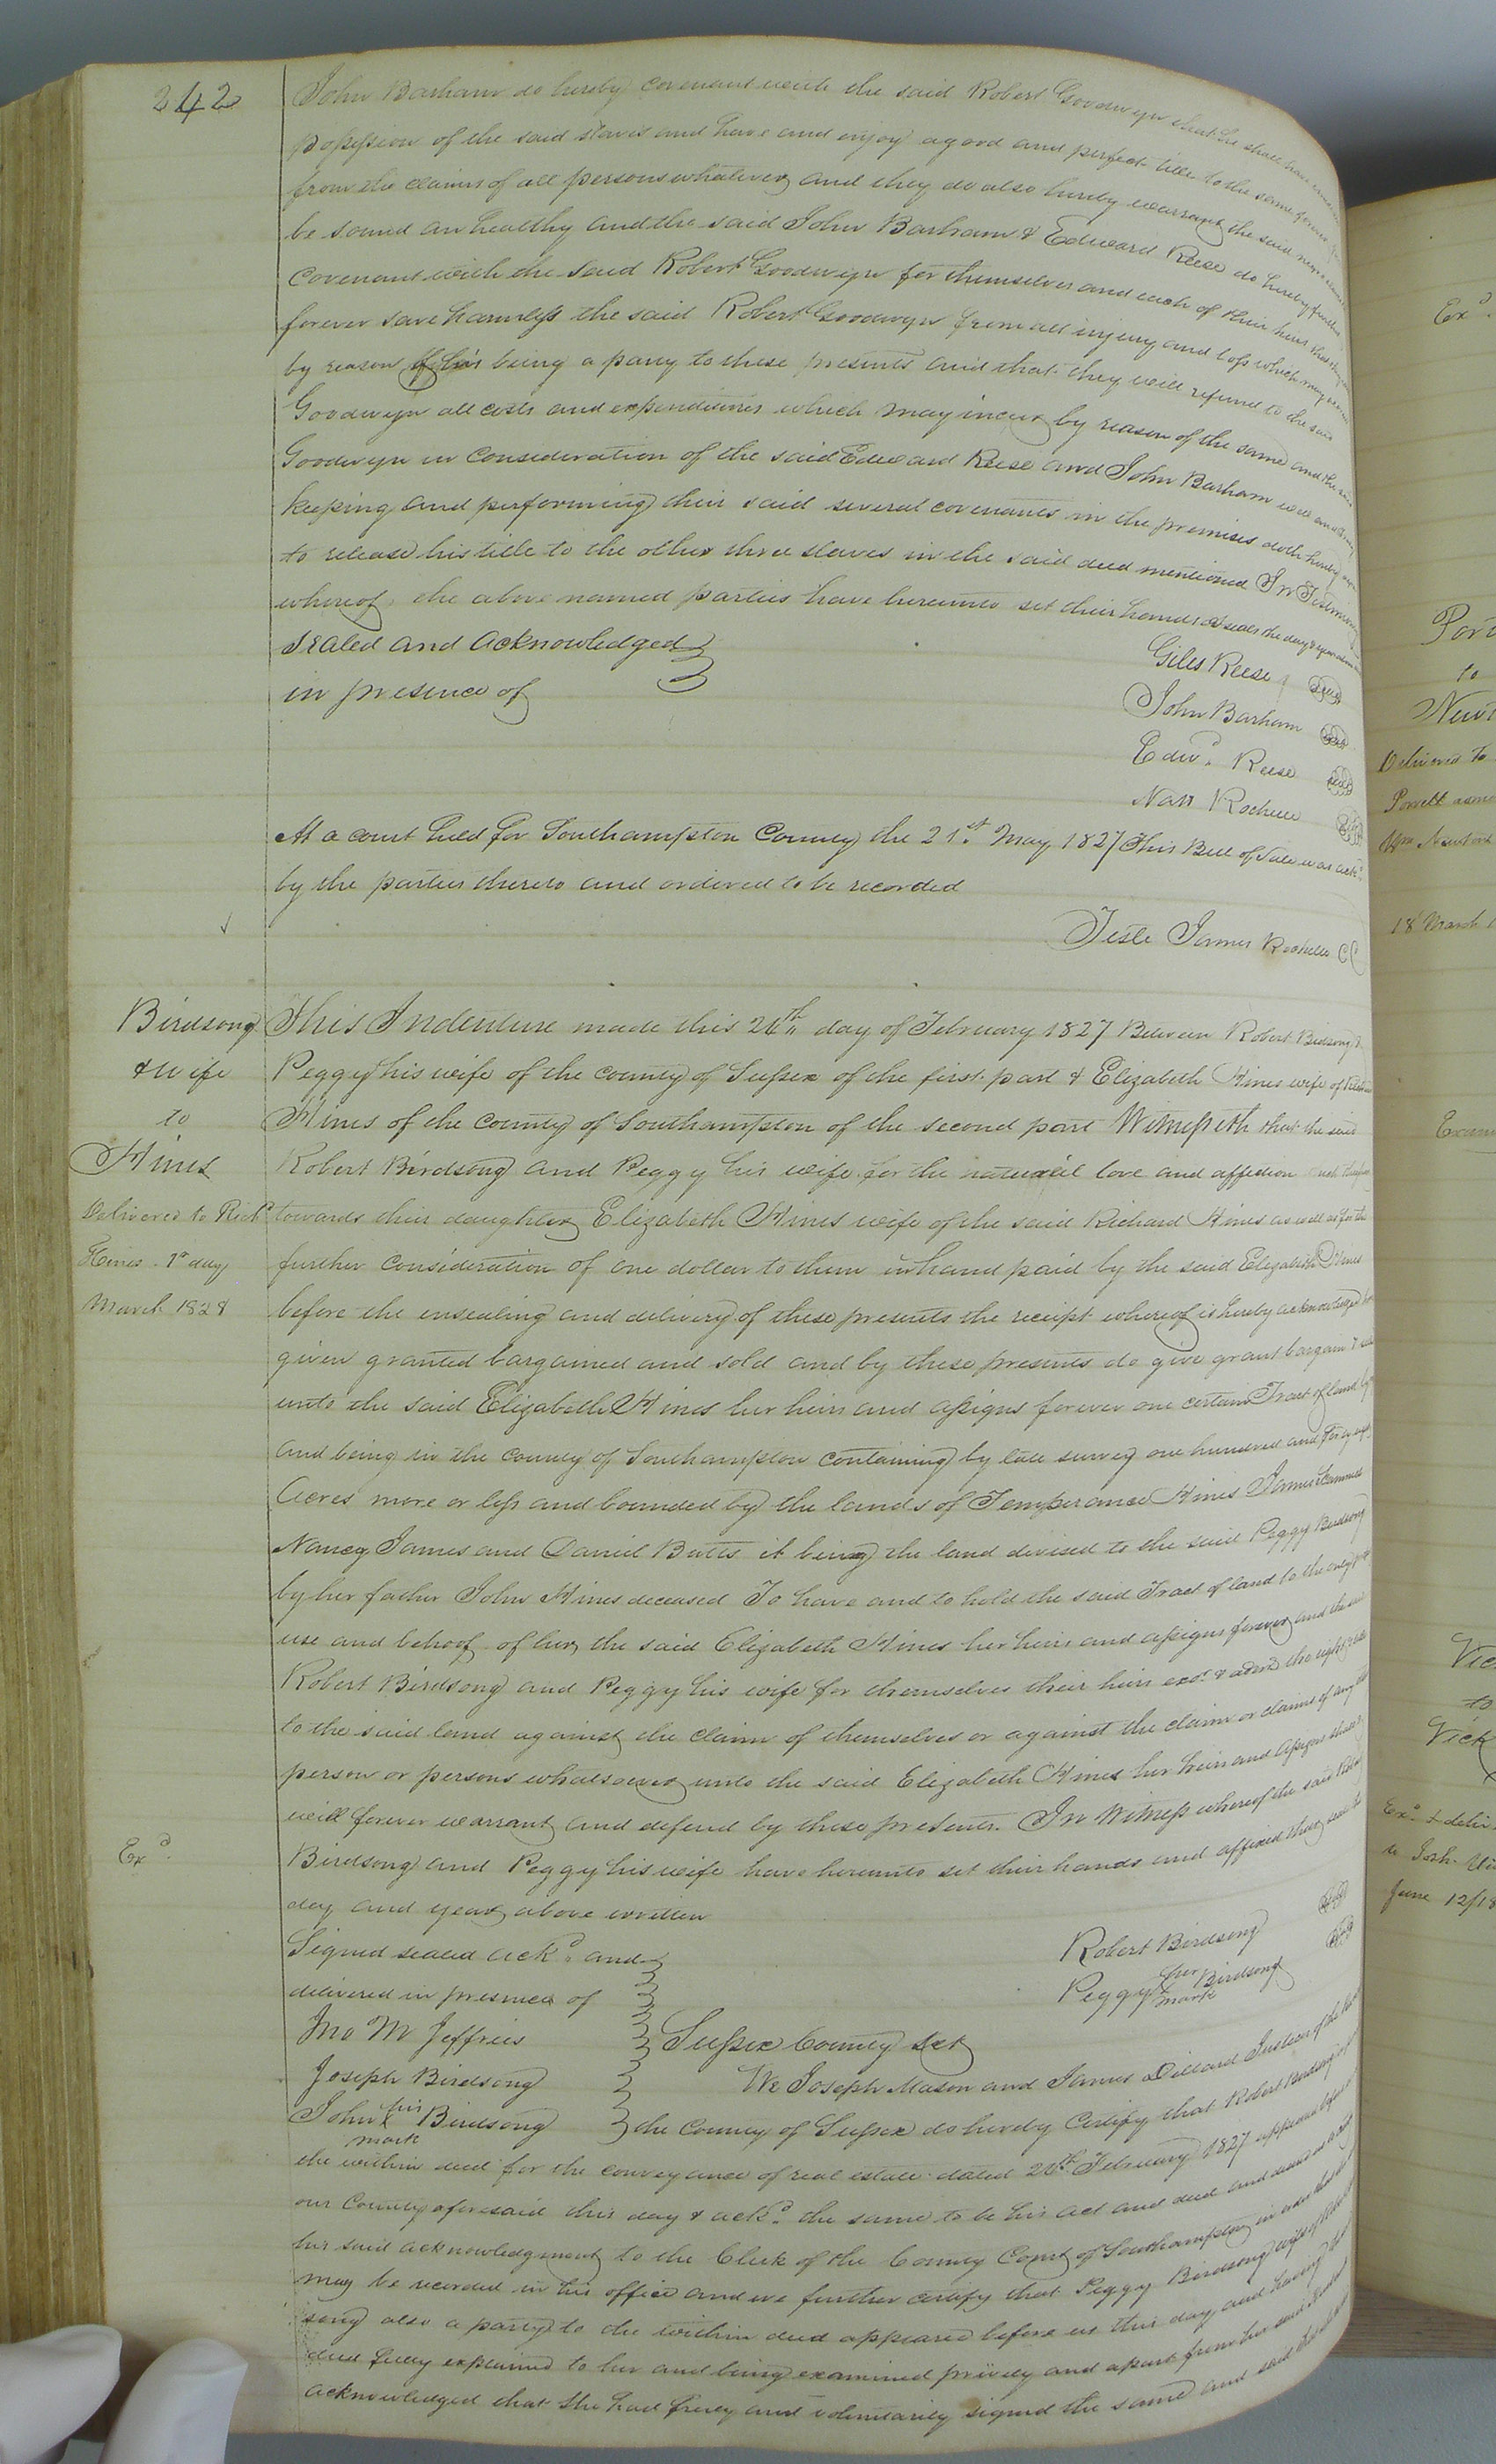 242
John Barham do hereby covenant with the said Robert Goodwyn that he shall have
possession of the said slaves and have and enjoy a good and perfect title to the same
from the claims of all persons whatever and they do also hereby warrant the said
be sound an healthy and the said John Barham & Edward Reese do hereby further
covenant with the said Robert Goodwyn for themselves and each of their heirs that they
forever save harmless the said Robert Goodwyn from all injury and loss which may
by reason of his being a party to these presents and that they will refund to the said
Goodwyn all costs and expenditures which may incur by reason of the same and the said
Goodwyn in consideration of the said Edward Reese and John Barham
keeping and performing their said several covenants in the premises doth hereby
to release his title to the other three slaves in the said deed mentioned In Testimony
whereof the above named parties have hereunto set their hands & seals the day & year above
Sealed and acknowledged
in presence of
Giles Reese seal
John Barham seal
Edwd. Reese seal
Natt Rochelle seal
At a court held for Southampton County the 21st. May 1827 This Bill of Sale was ackd.
by the parties thereto and ordered to be recorded
Teste James Rochelle CC
Birdsong
& Wife
to
Hines
Delivered to Richd
Hines 1st day
March 1828
This Indenture made this 26th day of February 1827 Between Robert Birdsong &
Peggy his wife of the county of Sussex of the first part & Elizabeth Hines wife of
Hines of the County of Southampton of the second part Witnesseth that the said
Robert Birdsong and Peggy his wife for the natural love and affection
towards their daughter Elizabeth Hines wife of the said Richard Hines as well as for the
further consideration of one dollar to them in hand paid by the said Elizabeth Hines
before the ensealing and delivery of these presents the receipt whereof is hereby acknowledged
given granted bargained and sold and by these presents do give grant bargain &
unto the said Elizabeth Hines her heirs and assigns forever one certain Tract of land
and being in the County of Southampton containing by late survey one hundred and
Acres more or less and bounded by the lands of Temperance Hines James
Nancy James and Daniel Butts it being the land devised to the said Peggy Birdsong
by her father John Hines deceased To have and to hold the said Tract of land to the only
use and behoof of her the said Elizabeth Hines her heirs and assigns forever and the said
Robert Birdsong and Peggy his wife for themselves their heirs exors & admrs the right & title
to the said land against the claim of themselves or against the claim or claims of any
person or persons whatsoever unto the said Elizabeth Hines her heirs and assigns shall &
will forever warrant and defend by these presents. In Witness whereof the said
Birdsong and Peggy his wife have hereunto set their hands and affixed their seals the
day and year above written
Exd.
Signed sealed ackd. and
delivered in presence of
Jno M Jeffries
Joseph Birdsong
John his Birdsong
mark
Robert Birdsong seal
Peggy her Birdsong seal
mark
Sussex County Sct
We Joseph Mason and James Dillard Justices of the
the County of Sussex do hereby Certify that Robert Birdsong
the within deed for the conveyance of real estate dated 26th February 1827 appeared before
our County aforesaid this day & ackd. the same to be his act and deed and
his said acknowledgment to the Clerk of the County Court of Southampton in order that
may be recorded in his office and we further certify that Peggy Birdsong wife of
song also a party to the within deed appeared before us this day and having
deed fully explained to her and being examined privily and apart from her said
acknowledged that she had freely and voluntarily signed the same and said
Exd.
to
Delivered to
18 March
Vick
June 12/18